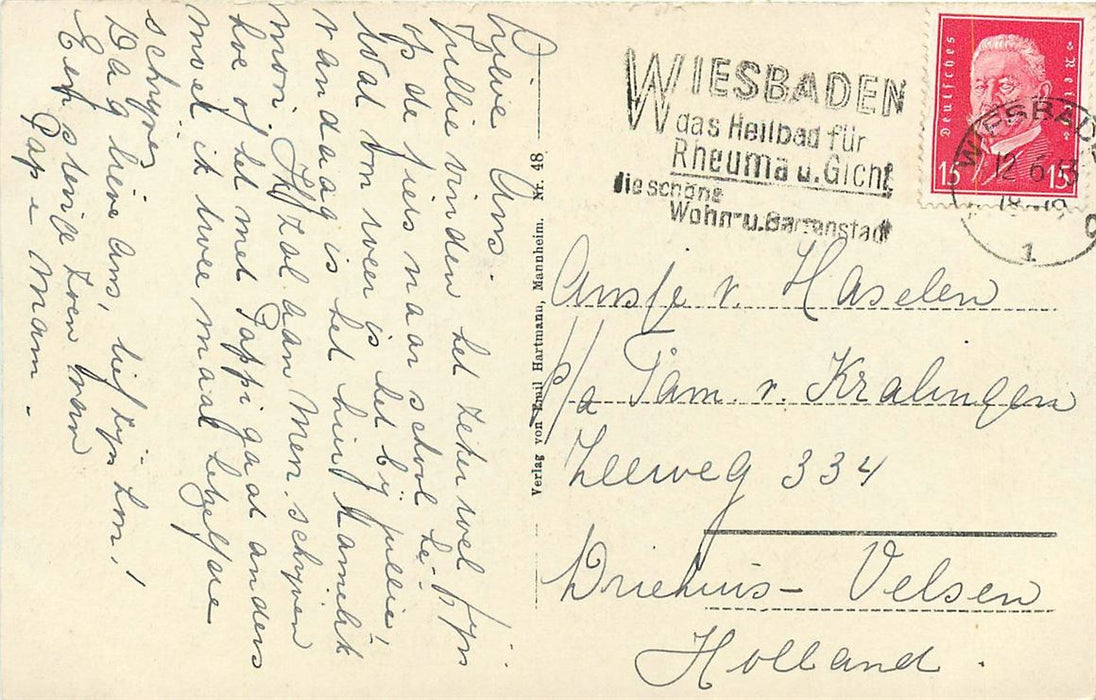 Lieve Ans.
Jullie vinden het zeker wel fijn
op de fiets naar school hè!
Wat voor weer is het bij jullie!
vandaag is het hier tamelijk
mooi. Ik zal aan Mien schrijven
hoe of het met Pappi gaat anders
moet ik twee maal hetzelfde
schrijven
Dag lieve Ans, lief zijn hoor!
Een stevige zoen van
Pap e Mam.
Verlag von Emil Hartmann, Mannheim. Nr. 48
WIESBADEN
das Heilbad für
Rheuma u. Gicht
die schöne
Wohn- u. Gartenstadt
Deutsches Reich
15 15
WIESBADEN
12.6.
18-19
1
Ansje v. Haselen
p/a Fam. v. Kralingen
Zeeweg 334
Driehuis - Velsen
Holland.